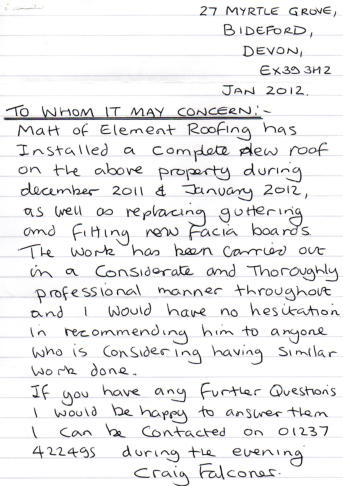 27 MYRTLE GROVE,
BIDEFORD,
DEVON,
EX39 3HZ
JAN 2012.
TO WHOM IT MAY CONCERN:-
Matt of Element Roofing has
Installed a complete new roof
on the above property during
december 2011 & January 2012,
as well as replacing guttering
and fitting new Facia boards
The work has been carried out
in a Considerate and Thoroughly
professional manner throughout
and I would have no hesitation
in recommending him to anyone
who is considering having similar
work done.
If you have any further Questions
I would be happy to answer them
I can be contacted on 01237
422495 during the evening
Craig Falconer.